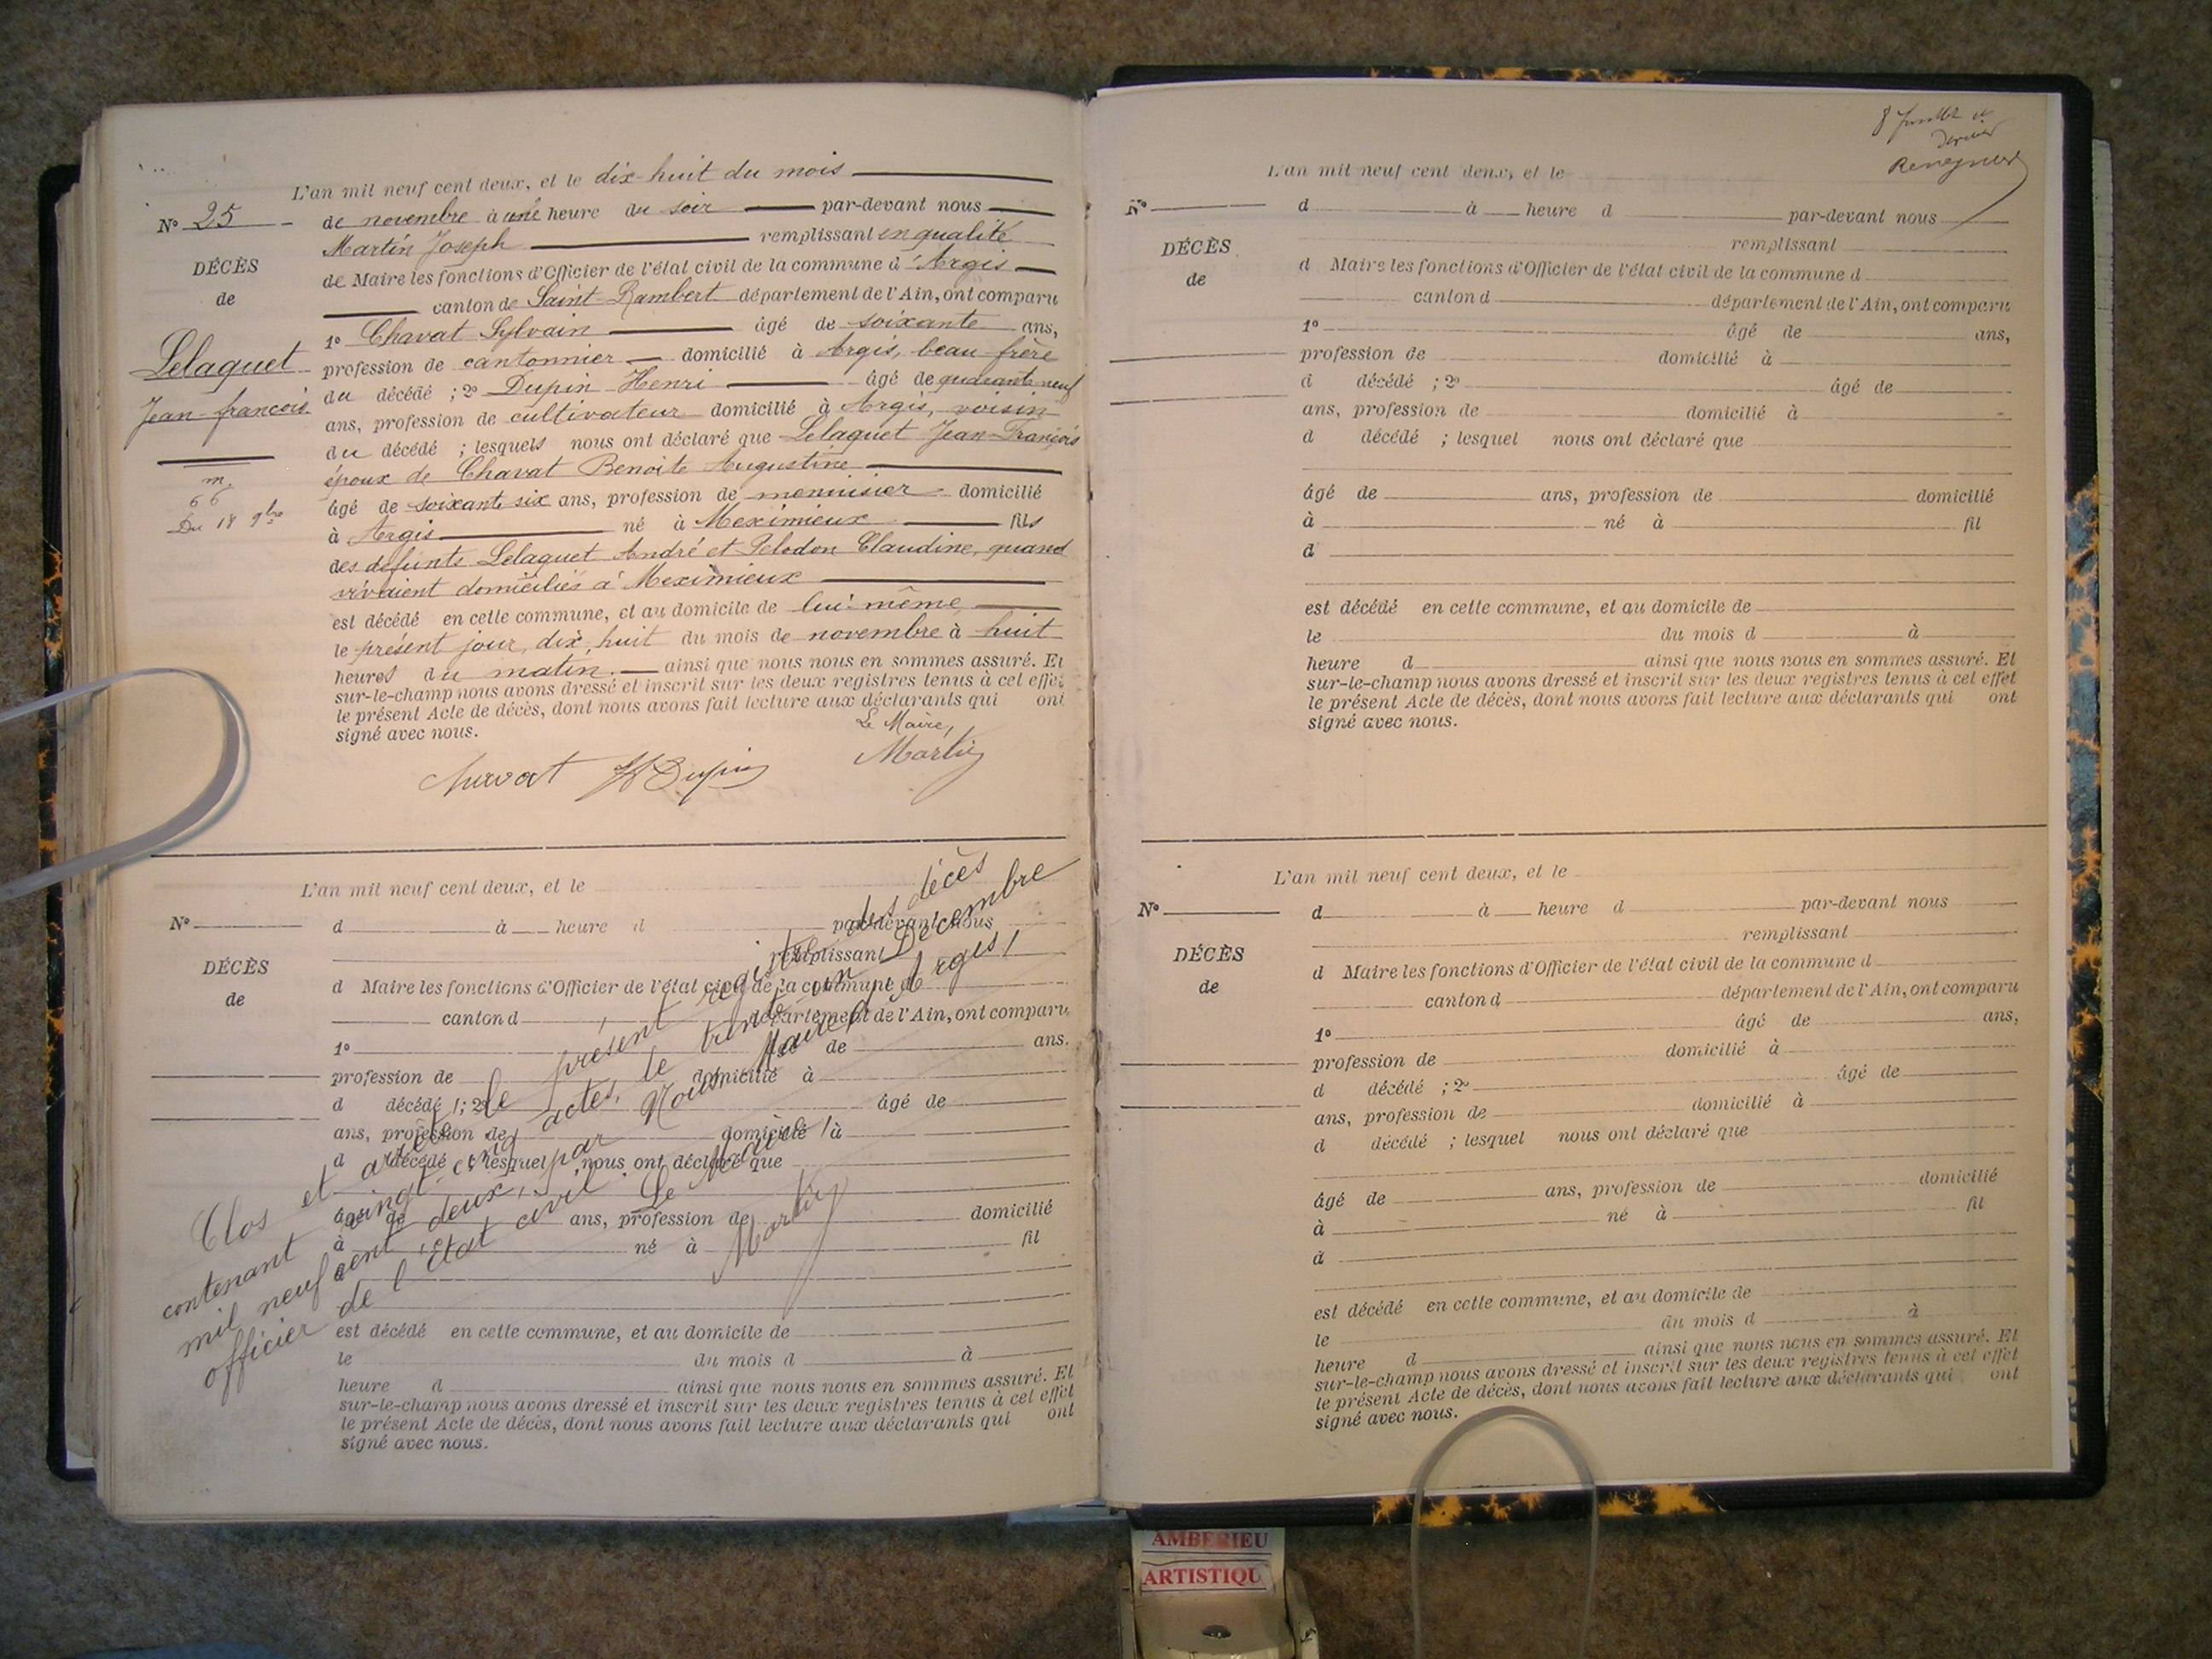 L'an mil neuf cent deux, et le dix-huit du mois
N° 25
de novembre à une heure du soir par-devant nous
Martin Joseph remplissant en qualité
DÉCÈS
de Maire les fonctions d'Officier de l'état civil de la commune d'Argis
de
canton de Saint-Rambert département de l'Ain, ont comparu
1° Chavat Sylvain âgé de soixante ans,
Lelaguet
profession de cantonnier domicilié à Argis, beau frère
du décédé ; 2° Dupin Henri âgé de quarante neuf
Jean-francois
ans, profession de cultivateur domicilié à Argis, voisin
du décédé ; lesquels nous ont déclaré que Lelaguet Jean-François
époux de Chavat Benoite Augustine
m.
66
Du 18 9bre
âgé de soixant six ans, profession de menuisier domicilié
à Argis né à Meximieux fils
des defunts Lelaguet André et Claudine, quand
vivaient domiciliés à Meximieux
est décédé en cette commune, et au domicile de lui-même
le présent jour, dix huit du mois de novembre à huit
heures du matin. ainsi que nous nous en sommes assuré. Et
sur-le-champ nous avons dressé et inscrit sur les deux registres tenus à cet effet
le présent Acte de décès, dont nous avons fait lecture aux déclarants qui ont
signé avec nous.
Le Maire,
Chavat H Dupin Martin
L'an mil neuf cent deux, et le
N°
d à heure d par-devant nous
remplissant
DÉCÈS
d Maire les fonctions d'Officier de l'état civil de la commune d
de
canton d département de l'Ain, ont comparu
1° âgé de ans.
profession de domicilié à
d décédé ; 2° âgé de
ans, profession de domicilié à
d décédé ; lesquel nous ont déclaré que
âgé de ans, profession de domicilié
à né à fil
d
est décédé en cette commune, et au domicile de
le du mois d à
heure d ainsi que nous nous en sommes assuré. Et
sur-le-champ nous avons dressé et inscrit sur les deux registres tenus à cet effet
le présent Acte de décès, dont nous avons fait lecture aux déclarants qui ont
signé avec nous.
Clos et arrêté le présent registre des décès
contenant vingt-cinq actes, le trente-un Décembre
mil neuf cent deux, par Nous, Maire d'Argis,
officier de l'Etat civil. Le Maire,
Martin
8
Dernier
L'an mil neuf cent deux, et le
N°
d à heure d par-devant nous
remplissant
DÉCÈS
d Maire les fonctions d'Officier de l'état civil de la commune d
de
canton d département de l'Ain, ont comparu
1° âgé de ans,
profession de domicilié à
d décédé ; 2° âgé de
ans, profession de domicilié à
d décédé ; lesquel nous ont déclaré que
âgé de ans, profession de domicilié
à né à fil
d
est décédé en cette commune, et au domicile de
le du mois d à
heure d ainsi que nous nous en sommes assuré. Et
sur-le-champ nous avons dressé et inscrit sur les deux registres tenus à cet effet
le présent Acte de décès, dont nous avons fait lecture aux déclarants qui ont
signé avec nous.
L'an mil neuf cent deux, et le
N°
d à heure d par-devant nous
remplissant
DÉCÈS
d Maire les fonctions d'Officier de l'état civil de la commune d
de
canton d département de l'Ain, ont comparu
1° âgé de ans,
profession de domicilié à
d décédé ; 2° âgé de
ans, profession de domicilié à
d décédé ; lesquel nous ont déclaré que
âgé de ans, profession de domicilié
à né à fil
d
est décédé en cette commune, et au domicile de
le du mois d à
heure d ainsi que nous nous en sommes assuré. Et
sur-le-champ nous avons dressé et inscrit sur les deux registres tenus à cet effet
le présent Acte de décès, dont nous avons fait lecture aux déclarants qui ont
signé avec nous.
AMBERIEU
ARTISTIQU